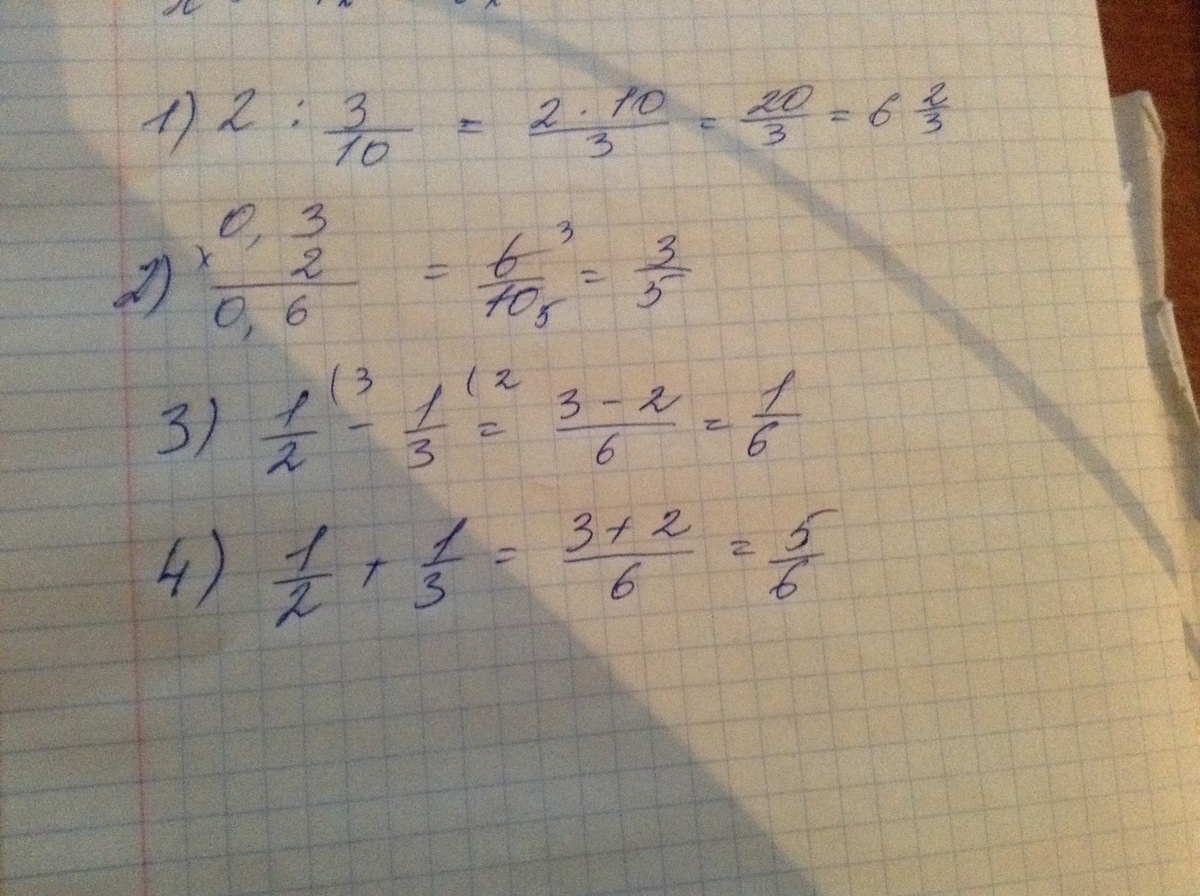 1) 2 : 3/10 = 2 · 10/3 = 20/3 = 6 2/3
2) × 0,3
2
0,6 = 6/10 3 5 = 3/5
3) 1/2 (3 - 1/3 (2 = 3 - 2/6 = 1/6
4) 1/2 + 1/3 = 3 + 2/6 = 5/6